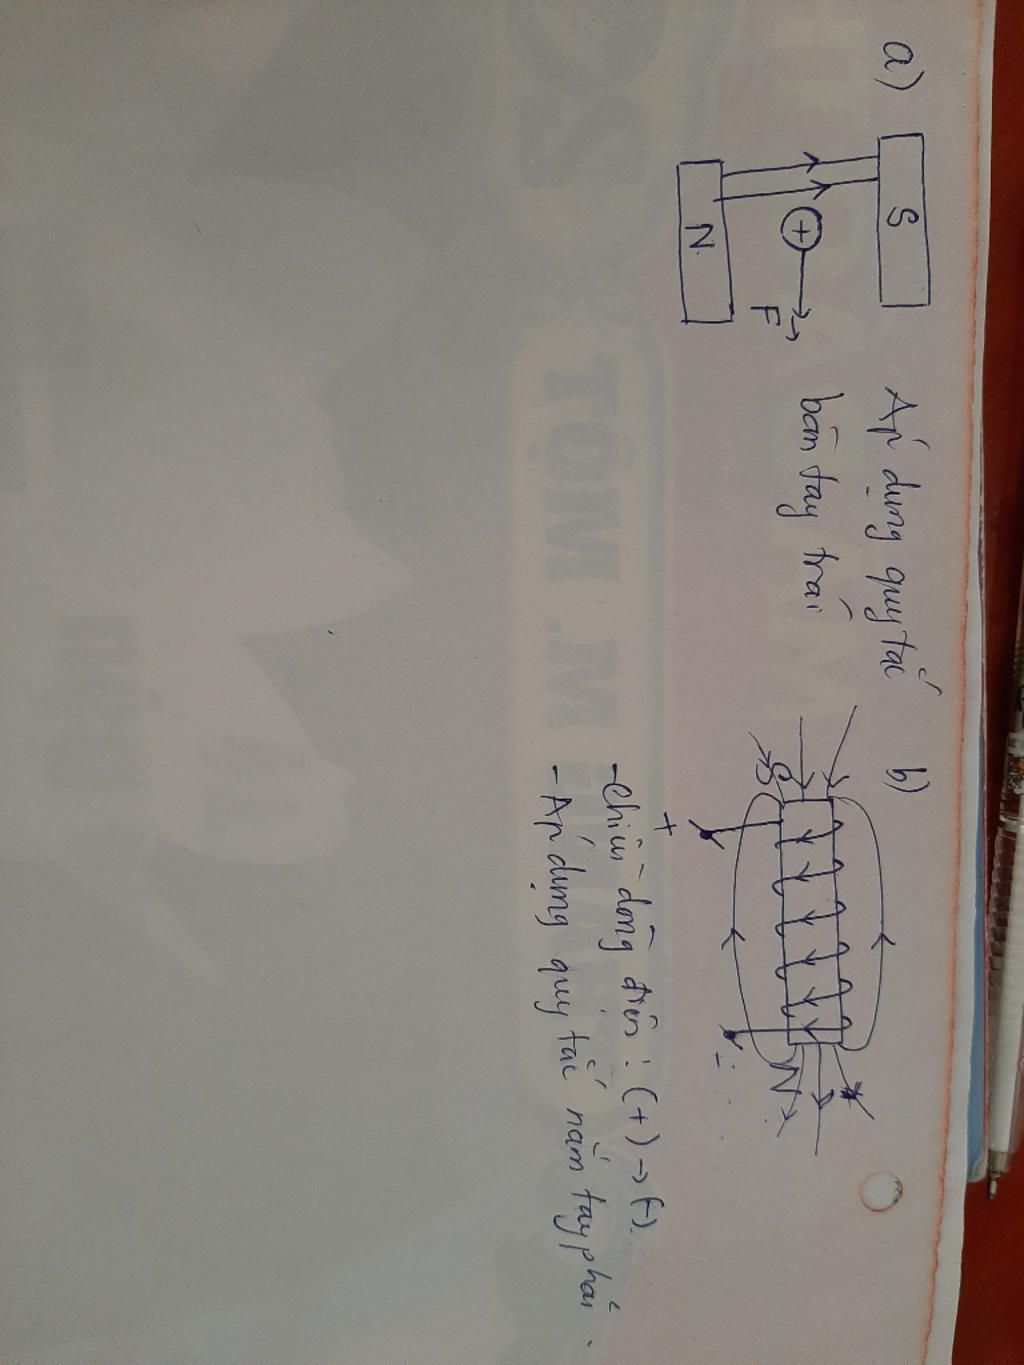 a)
S
+
F
N
Áp dụng quy tắc
bàn tay trái
b)
S
N
+
-
- Chiều dòng điện : (+) → (-).
- Áp dụng quy tắc nắm tay phải.
TÓM